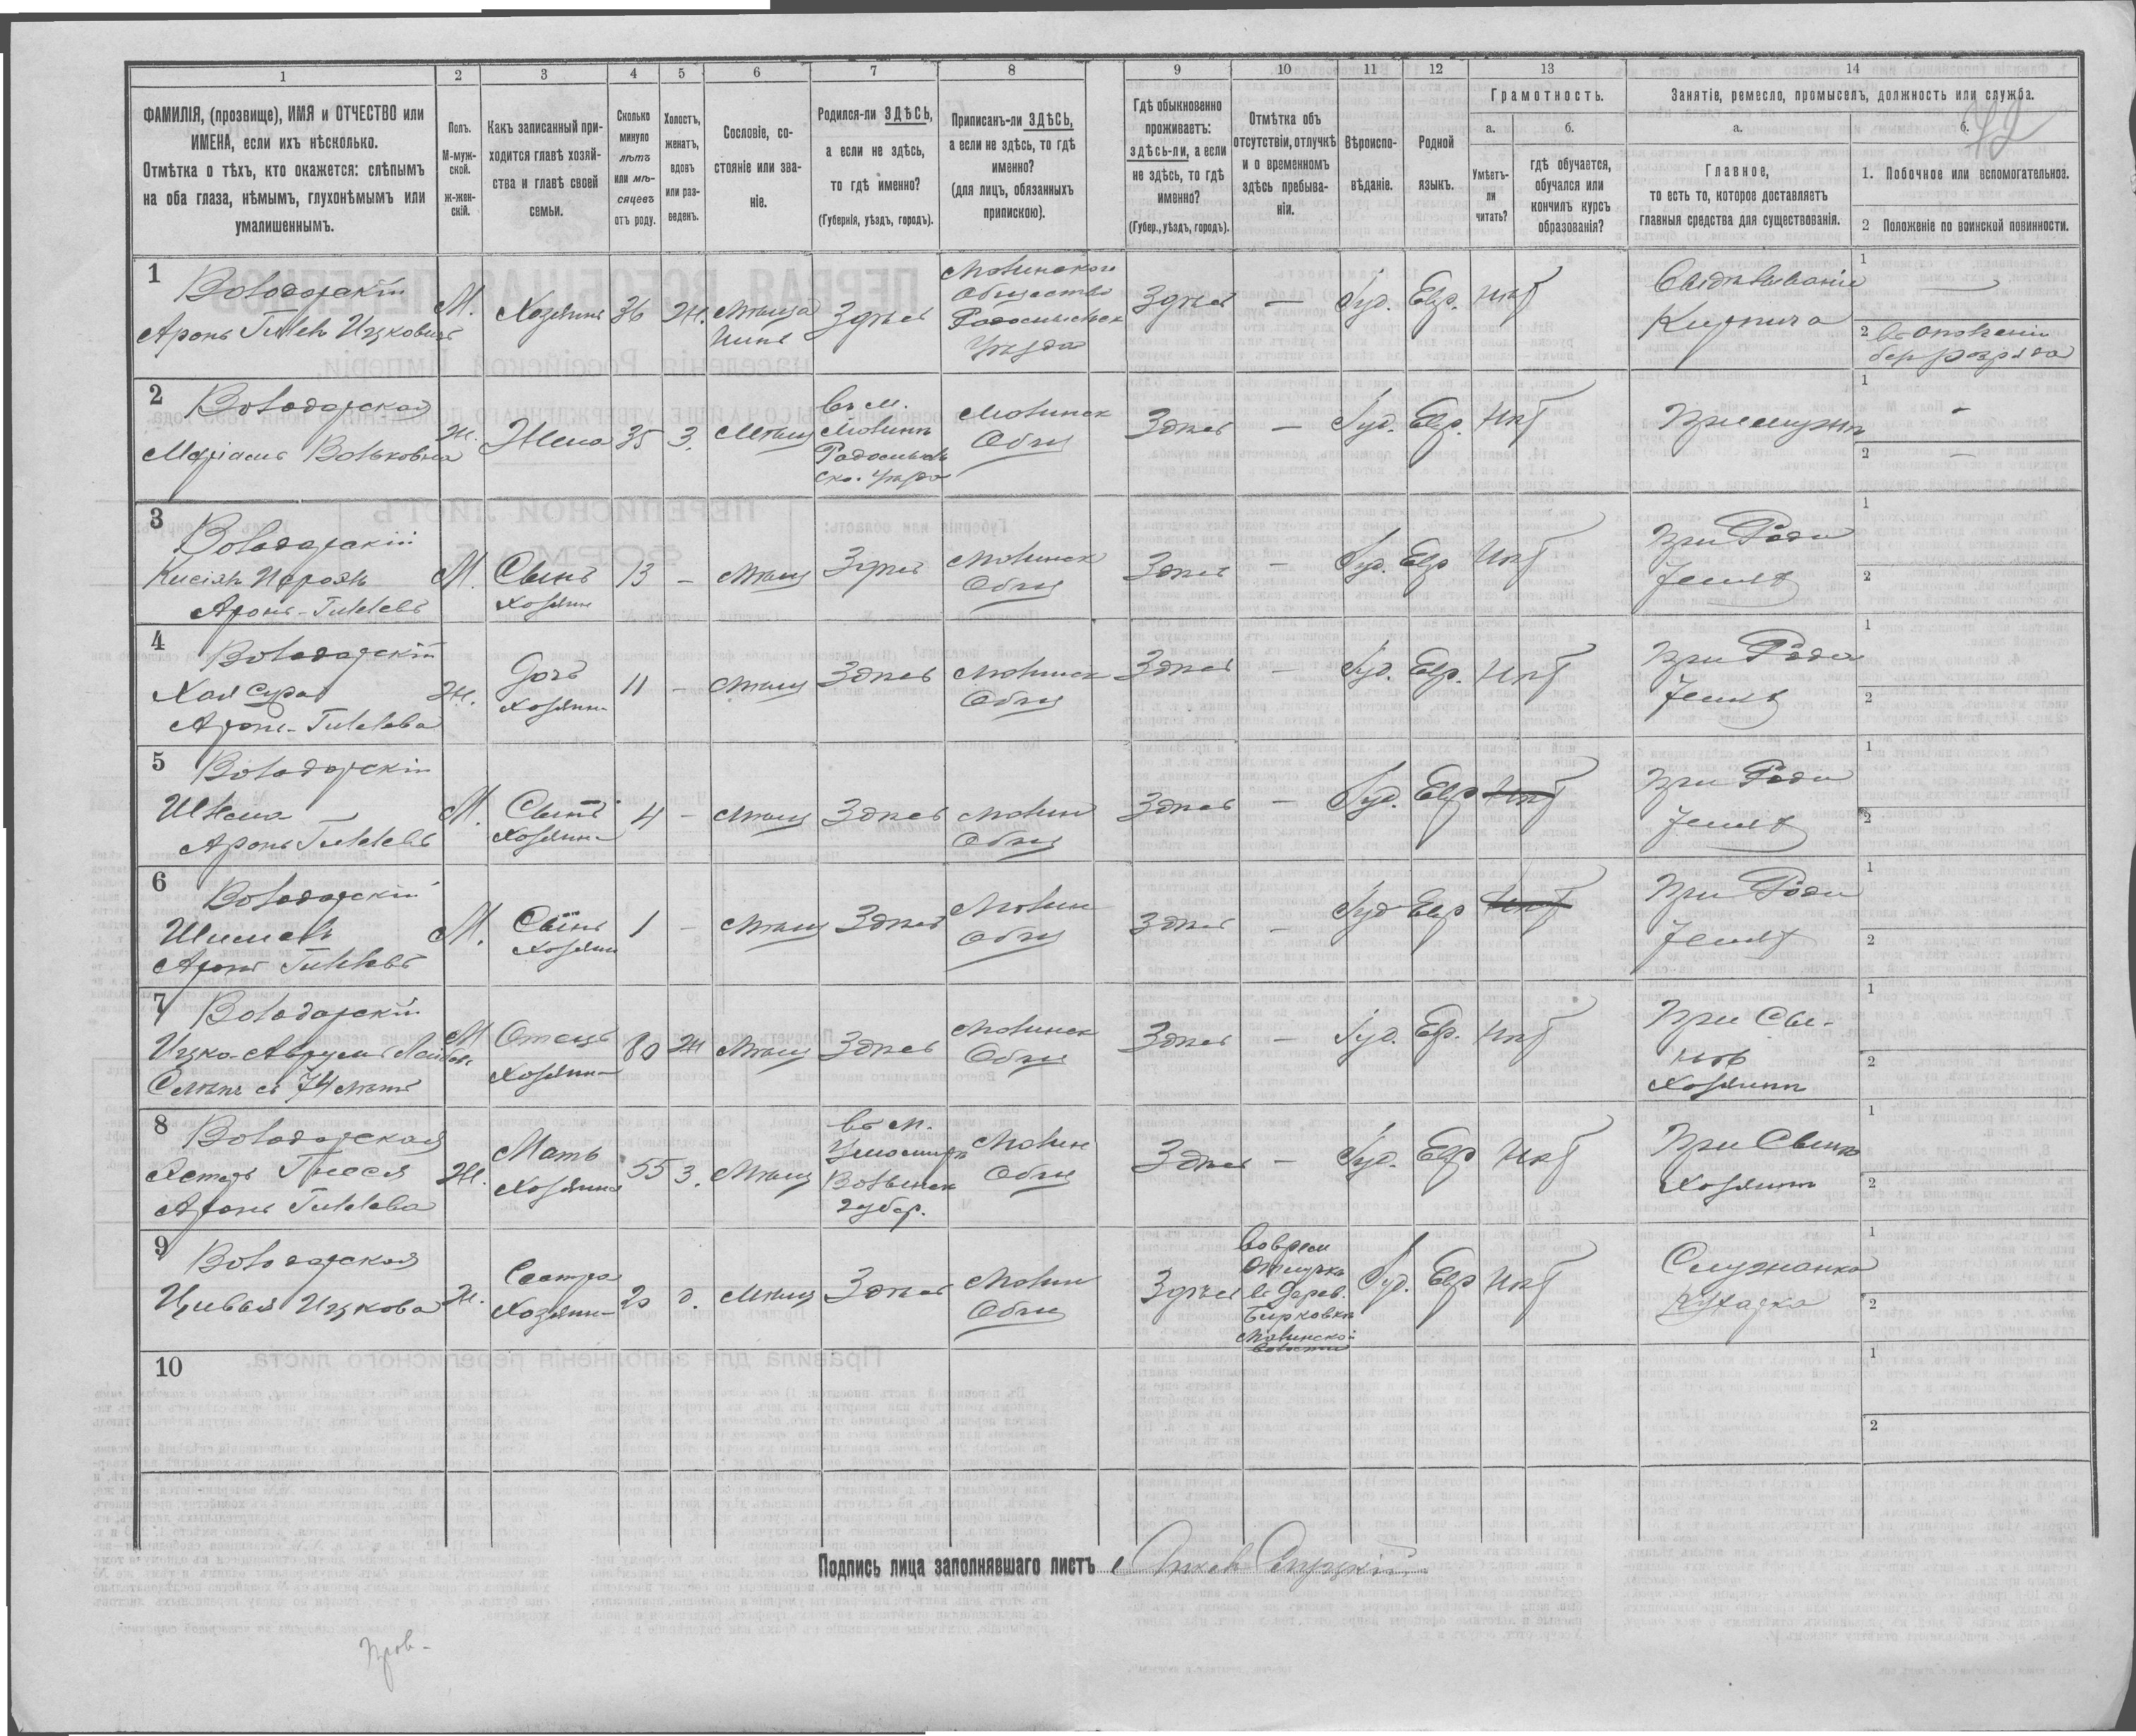 1 2 3 4 5 6 7 8 9 10 11 12 13 14
ФАМИЛІЯ, (прозвище), ИМЯ и ОТЧЕСТВО или
ИМЕНА, если ихъ нѣсколько.
Отмѣтка о тѣхъ, кто окажется: слѣпымъ
на оба глаза, нѣмымъ, глухонѣмымъ или
умалишеннымъ.
Полъ.
М-муж-
ской.
ж-жен-
скій.
Какъ записанный при-
ходится главѣ хозяй-
ства и главѣ своей
семьи.
Сколько
минуло
лѣтъ
или мѣ-
сяцевъ
отъ роду.
Холостъ,
женатъ,
вдовъ
или раз-
веденъ.
Сословіе, со-
стояніе или зва-
ніе.
Родился-ли ЗДѢСЬ,
а если не здѣсь,
то гдѣ именно?
(Губернія, уѣздъ, городъ).
Приписанъ-ли ЗДѢСЬ,
а если не здѣсь, то гдѣ
именно?
(для лицъ, обязанныхъ
припискою).
Гдѣ обыкновенно
проживаетъ:
здѣсь-ли, а если
не здѣсь, то гдѣ
именно?
(Губер., уѣздъ, городъ).
Отмѣтка объ
отсутствіи, отлучкѣ
и о временномъ
здѣсь пребыва-
ніи.
Вѣроиспо-
вѣданіе.
Родной
языкъ.
Грамотность.
а.
Умѣетъ-
ли
читать?
б.
гдѣ обучается,
обучался или
кончилъ курсъ
образованія?
Занятіе, ремесло, промыселъ, должность или служба.
а.
Главное,
то есть то, которое доставляетъ
главныя средства для существованія.
б.
1. Побочное или вспомогательное.
2 Положеніе по воинской повинности.
42
1
Володарскій
Аронъ Гилель Ицковичъ
М.
Хозяинъ
36
Ж.
Мѣща
нинъ
Здѣсь
Малинскаго
Общества
Радомысльск
Уѣзда
Здѣсь
—
Іуд.
Евр.
Нѣт
Кирпича
1 —
2 въ ополченіи
2
Володарская
Маріамъ Вольковна
Ж.
Жена
35
З.
Мѣщ
въ м.
Малинъ
Радомысль
ско. Уѣзда
Малинск
Общ
Здѣсь
—
Іуд.
Евр.
Нѣт
При мужѣ
1 -
2 —
3
Володарскій
Аронъ-Гиллевъ
М.
Сынъ
Хозяин
13
-
Мѣщ
Здѣсь
Малинск
Общ
Здѣсь
-
Іуд.
Евр
Нѣт
При Роди
теляхъ
1
2
4
Володарскій
Хая Сура
Аронъ-Гиллева
Ж.
Дочь
Хозяин
11
-
Мѣщ
Здѣсь
Малинск
Общ
Здѣсь
-
Іуд.
Евр.
Нѣт
При Роди
теляхъ
1
2
5
Володарскій
Аронъ Гиллевъ
М.
Сынъ
Хозяина
4
-
Мѣщ
Здѣсь
Малин
Общ
Здѣсь
-
Іуд.
Евр
Нѣт
При Роди
теляхъ
1
2
6
Володарскій
Шмилъ
Аронъ Гиллевъ
М.
Сынъ
Хозяин
1
-
Мѣщ
Здѣсь
Малин
Общ
Здѣсь
-
Іуд
Евр
Нѣт
При Роди
теляхъ
1
2
7
Володарскій
Слѣпъ съ 74 лѣтъ
М
Отецъ
Хозяина
80
Ж
Мѣщ
Здѣсь
Малинск
Общ
Здѣсь
-
Іуд.
Ев.
Нѣт
При Сы-
нѣ
Хозяинѣ
1
2
8
Володарская
Аронъ Гиллева
Ж.
Мать
Хозяина
55
З.
Мѣщ
въ м.
Волынск
губер.
Малин
Общ
Здѣсь
-
Іуд.
Евр
Нѣт
При Сынѣ
Хозяинѣ
1
2
9
Володарская
Цивья Ицкова
Ж.
Сестра
Хозяин
20
д.
Мѣщ
Здѣсь
Малин
Общ
Здѣсь
Отлучкѣ
в Дерев.
Бирковкѣ
Малинской
волости
Іуд.
Евр
Нѣт
Служанка
Кухарка
1
2
10
1
2
Подпись лица заполнявшаго листъ
Пров-